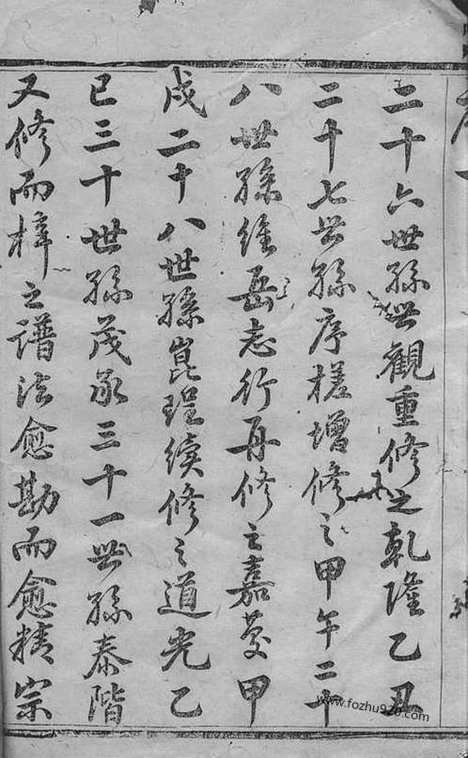 二十六世孫世觀重修之乾隆乙丑
二十七世孫序槎增修之甲午二十
八世孫維岳志行再修之嘉慶甲
戌二十八世孫崑珵續修之道光乙
巳三十世孫茂承三十一世孫泰階
又修而梓之譜法愈勘而愈精宗
www.fozhu920.com